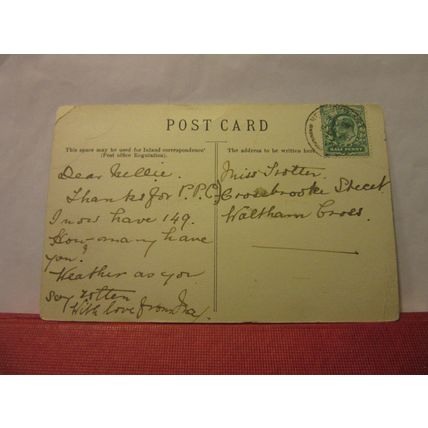 POST CARD
This space may be used for Inland correspondence
(Post office Regulation).
The address to be written here
Dear Nellie.
Thanks for P.P.C,
I now have 149.
How many have
you?
Weather as you
say rotten
With love from
Miss Trotter.
Crossbrooke Street
Waltham Cross.
HALF PENNY